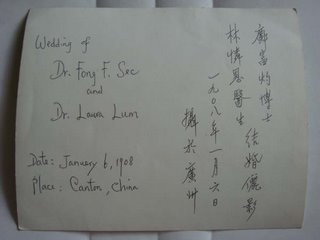 Wedding of
Dr. Fong F. Sec
and
Dr. Laura Lum
Date: January 6, 1908
Place: Canton, China
鄺富灼博士
林憐恩醫生
結婚儷影
一九〇八年一月六日
攝於廣州